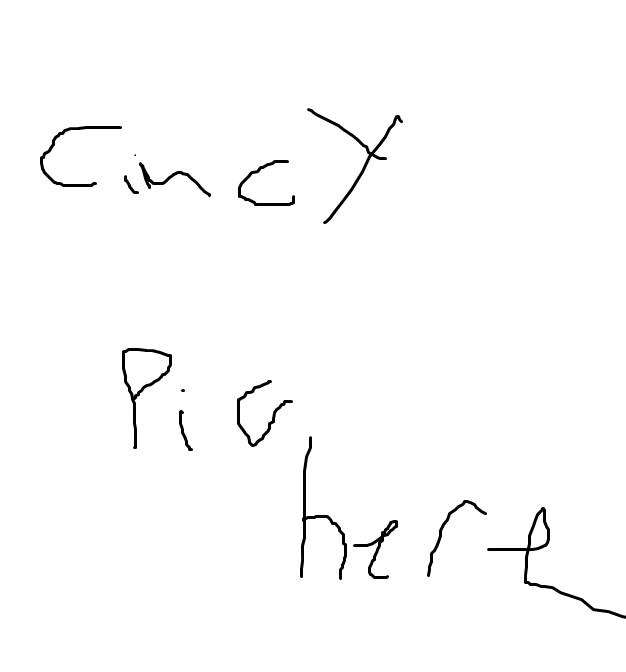 CincY
Pic
here